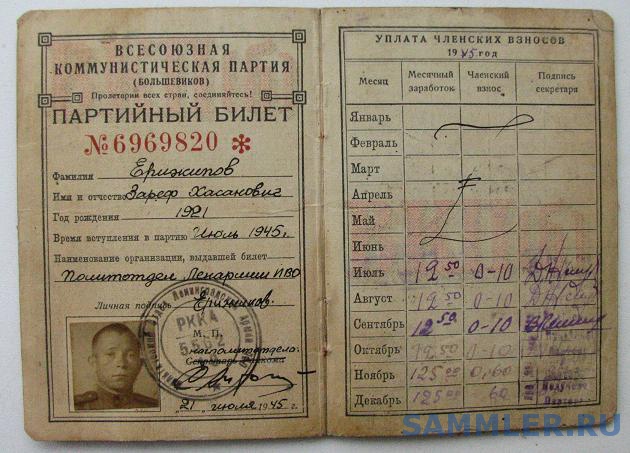 ВСЕСОЮЗНАЯ
КОММУНИСТИЧЕСКАЯ ПАРТИЯ
(БОЛЬШЕВИКОВ)
Пролетарии всех стран, соединяйтесь!
ПАРТИЙНЫЙ БИЛЕТ
№ 6969820 *
Фамилия Ерижипов
Имя и отчество Зареф Хасанович
Год рождения 1921
Время вступления в партию Июль 1945г.
Наименование организации, выдавшей билет
Политотдел
Личная подпись
РККА
5582
М. П.
"21" июля 1945 г.
УПЛАТА ЧЛЕНСКИХ ВЗНОСОВ
1945 год
Месяц Месячный заработок Членский взнос Подпись секретаря
Январь
Февраль
Март
Апрель
Май
Июнь
Июль 12 50 0-10
Август 12 50 0-10
Сентябрь 12 50 0-10
Октябрь 12 50 0-10
Ноябрь 125 00 0,60
Декабрь 125 00 60
SAMMLER.RU